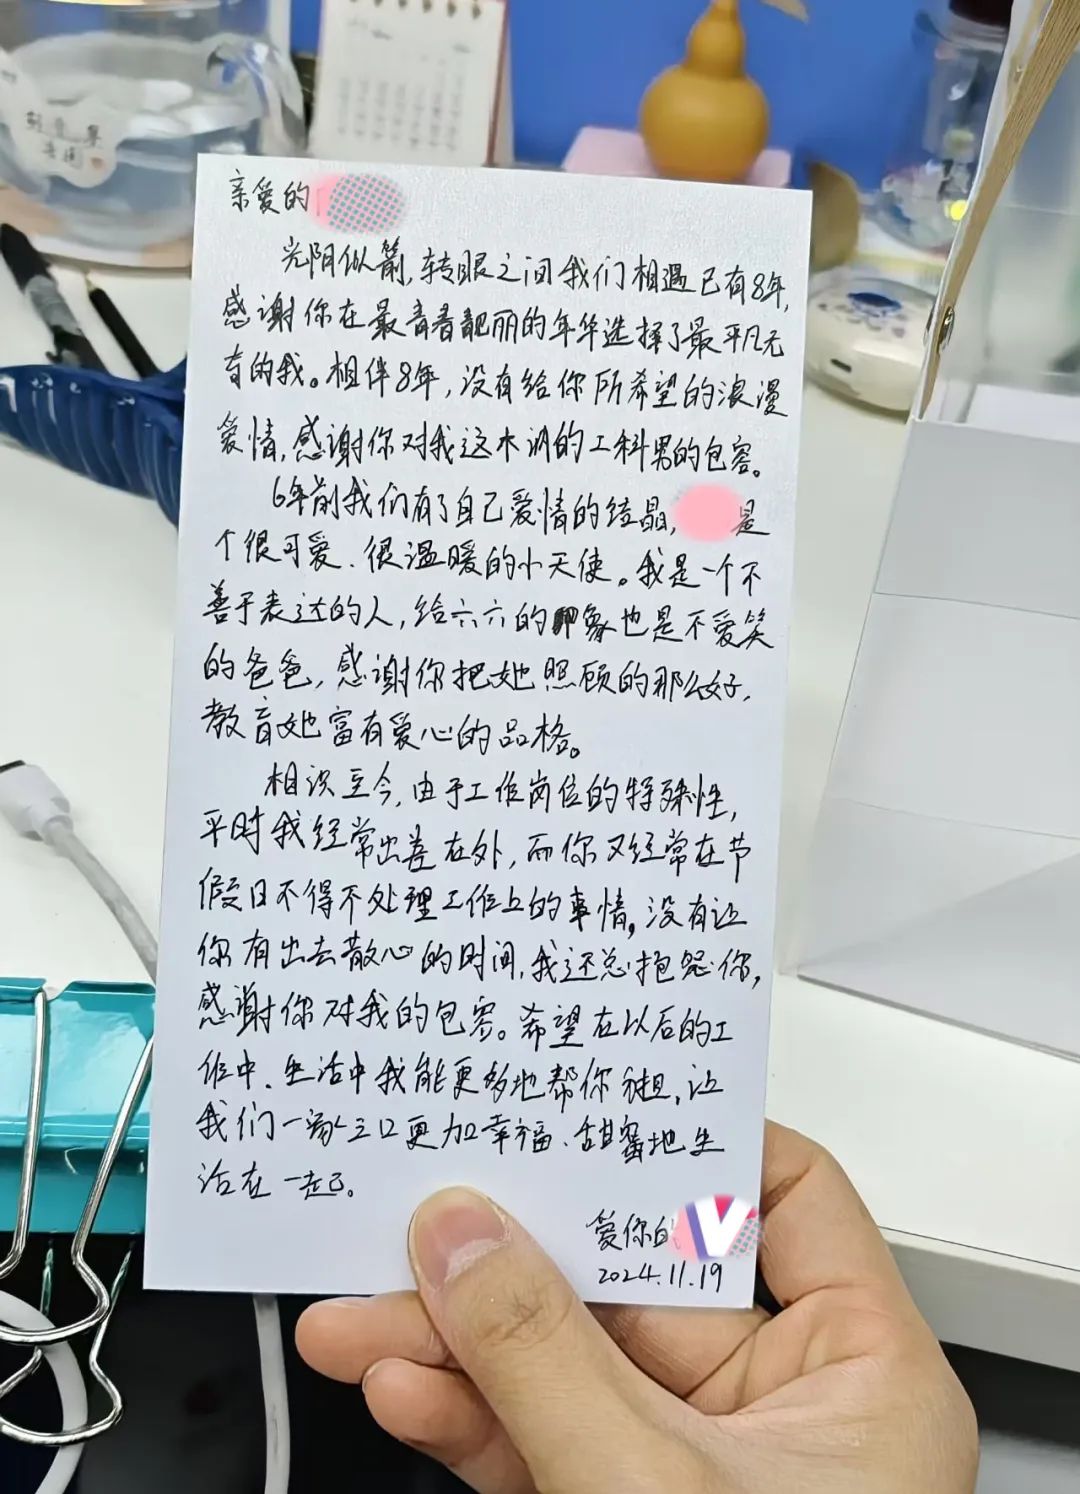 亲爱的
光阴似箭,转眼之间我们相遇已有8年,
感谢你在最青春靓丽的年华选择了最平凡无
奇的我。相伴8年,没有给你所希望的浪漫
爱情,感谢你对我这木讷的工科男的包容。
6年前我们有了自己爱情的结晶, 是
个很可爱、很温暖的小天使。我是一个不
善于表达的人,给六六的印象也是不爱笑
的爸爸,感谢你把她照顾的那么好,
教育她富有爱心的品格。
相识至今,由于工作岗位的特殊性,
平时我经常出差在外,而你又经常在节
假日不得不处理工作上的事情,没有让
你有出去散心的时间,我还总抱怨你,
感谢你对我的包容。希望在以后的工
作中、生活中我能更多地帮你分担,让
我们一家三口更加幸福、甜蜜地生
活在一起。
爱你的
V
2024.11.19